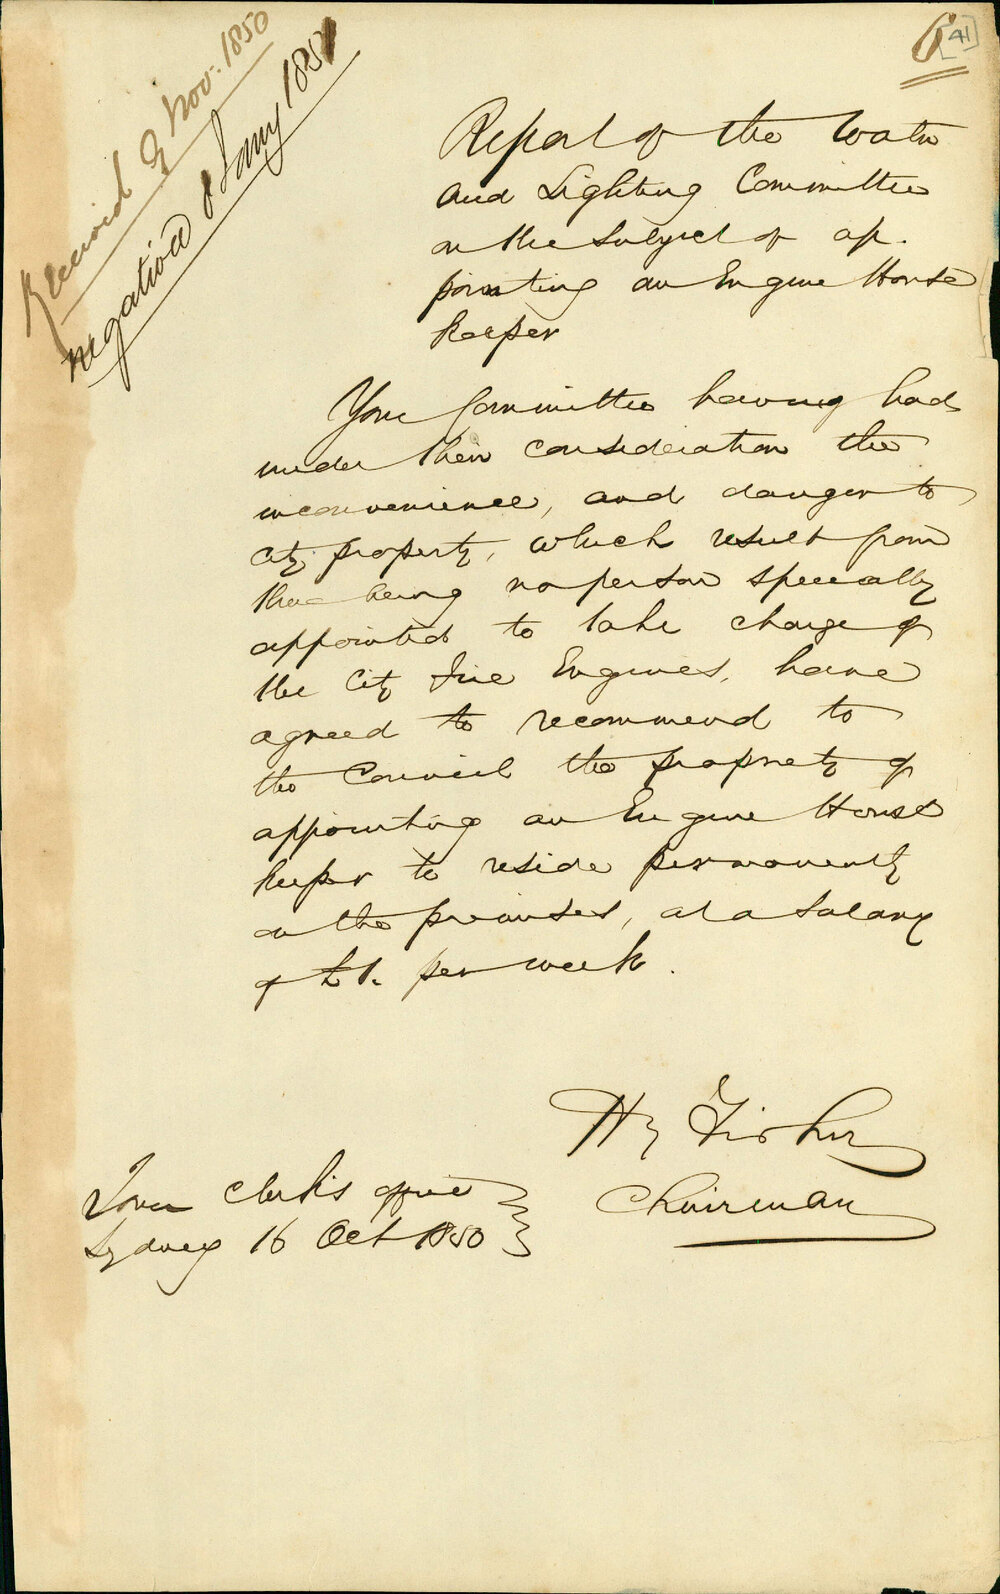 Received 9 Nov. 1850
negatived 8 Jany 1851
6 [41]
Report of the Water
and Lighting Committee
on the subject of ap.
pointing an Engine House
keeper
Your Committee having had
under their consideration the
inconvenience, and danger to
City property, which result from
there being no person specially
appointed to take charge of
the City Fire Engines, have
agreed to recommend to
the Council the propriety of
appointing an Engine House
keeper to reside permanently
on the premises, at a salary
of £1. per week.
Hy Fisher
Chairman
Town Clerk's office
Sydney 16 Oct 1850